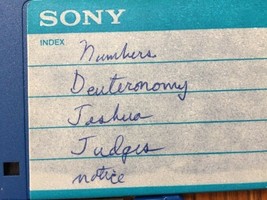 SONY
INDEX
Numbers
Deuteronomy
Joshua
Judges
notice